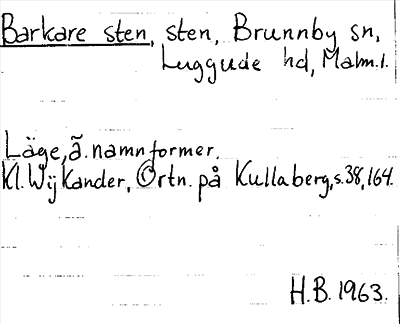 Barkare sten, sten, Brunnby sn,
Luggude hd, Malm.l.
Läge, ä. namnformer.
Kl. Wijkander, Ortn. på Kullaberg, s. 38, 164.
H.B. 1963.